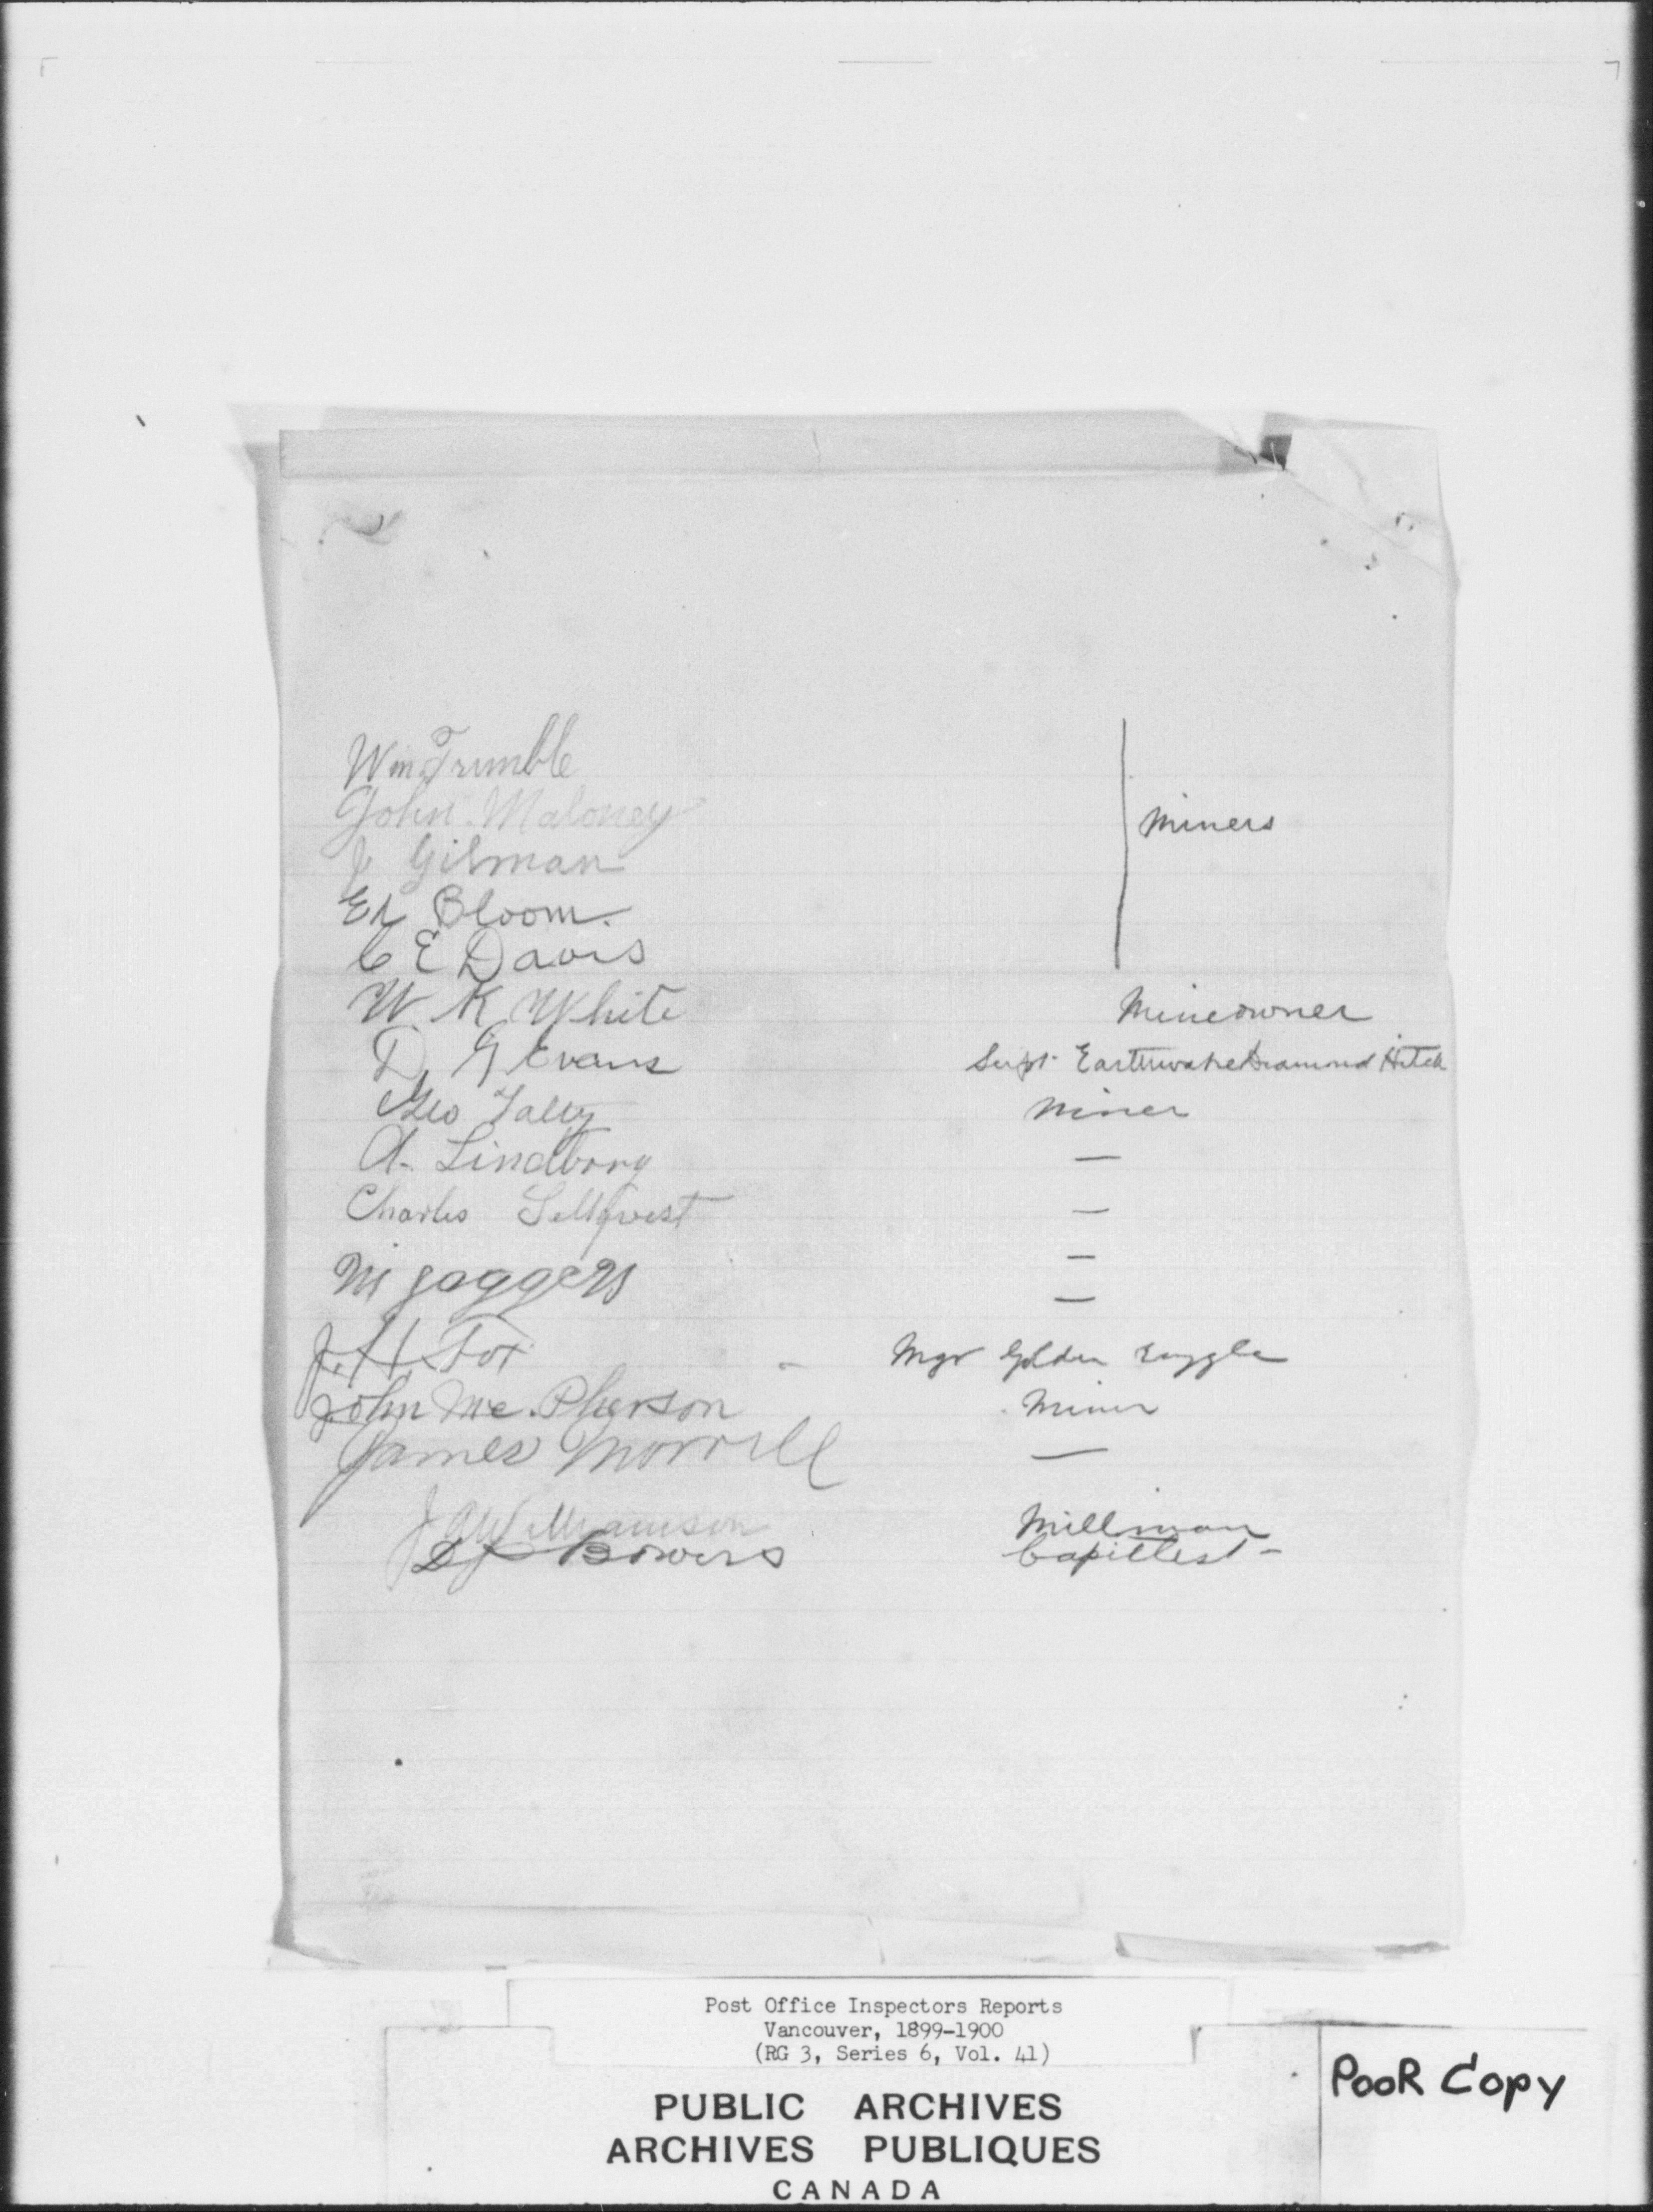 Wm Trumble
John Maloney miners
J Gilman
Bloom.
C E Davis
W K White Mineowner
D G Evans Supt. Diamond Hitch
Geo miner
A. Lindborg —
Charles —
M Jaggers —
—
J. H. Fox - Mgr Golden Eaggle
John Mc.Pherson Miner
James Morrill —
J Williamson Millman
Bowers Capitlest -
Post Office Inspectors Reports
Vancouver, 1899-1900
(RG 3, Series 6, Vol. 41)
PooR Copy
PUBLIC ARCHIVES
ARCHIVES PUBLIQUES
CANADA